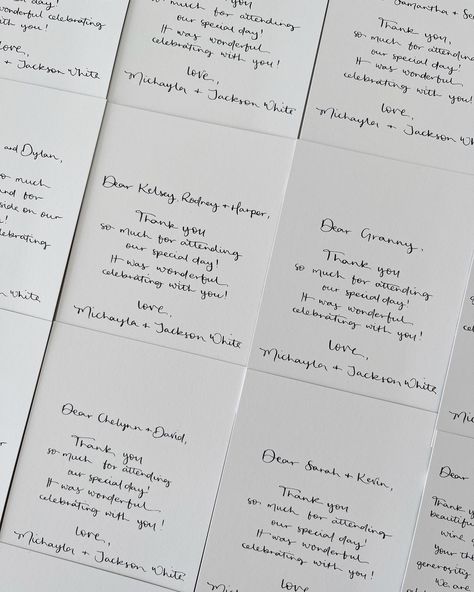 day!
wonderful
celebrating
with you!
Love,
Jackson White
so much for attending
our special day!
It was wonderful
celebrating with you!
love,
Michayla + Jackson White
Samantha +
Thank you,
so much for attending
our special day!
It was wonderful
celebrating with you!
love,
Michayla + Jackson White
and Dylan,
so much
and for
side on our
!
celebrating
White
Dear Kelsey, Rodney + Harper,
Thank you
so much for attending
our special day!
It was wonderful
celebrating with you!
love,
Michayla + Jackson White
Dear Granny,
Thank you
so much for attending
our special day!
It was wonderful
celebrating with you!
love,
Michayla + Jackson White
Dear Chelynn + David,
Thank you
so much for attending
our special day!
It was wonderful
celebrating with you!
love,
Michayla + Jackson White
Dear Sarah + Kevin,
Thank you
so much for attending
our special day!
It was wonderful
celebrating with you!
love,
Michayla + Jackson White
Dear
Thank
beautiful
wine
your
generosity
We are